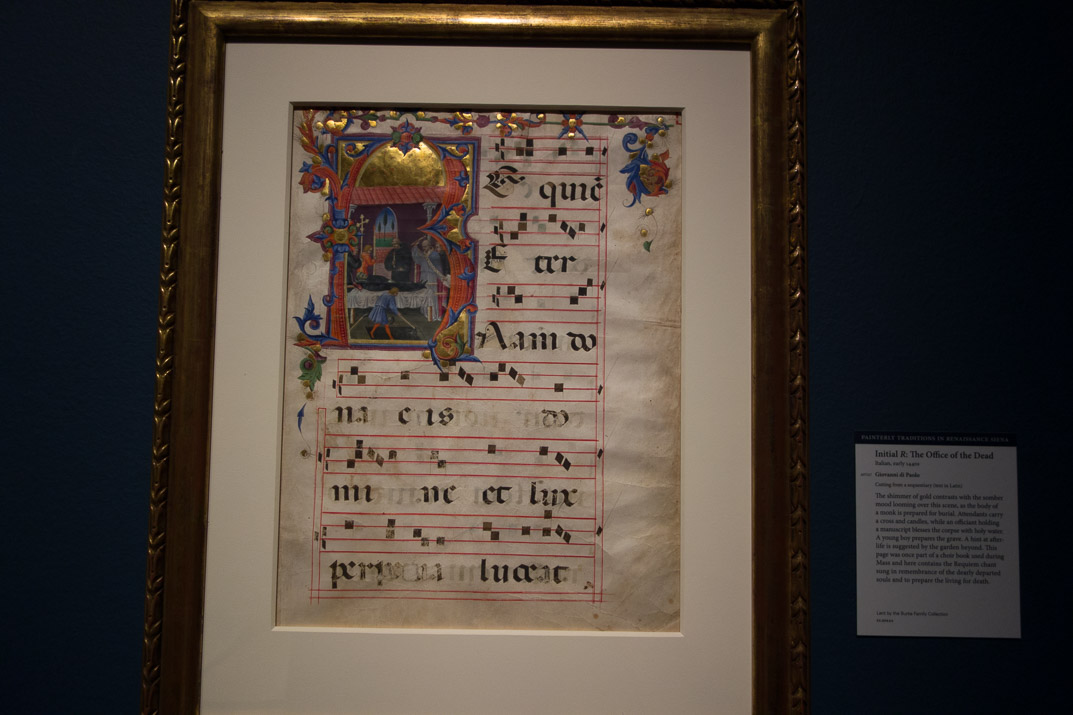 Requiē
Eter
Nam do
na eis do
mi ne et lux
perpetua luceat
PAINTERLY TRADITIONS IN RENAISSANCE SIENA
Initial R: The Office of the Dead
Italian, early 1440s
Giovanni di Paolo
Cutting from a
The shimmer of gold contrasts with the somber
mood looming over this scene, as the body of
a monk is prepared for burial. Attendants carry
a cross and candles, while an officiant holding
a manuscript blesses the corpse with holy water.
A young boy prepares the grave. A hint at after-
life is suggested by the garden beyond. This
page was once part of a choir book used during
Mass and here contains the Requiem chant
sung in remembrance of the dearly departed
souls and to prepare the living for death.
Lent by the Burke Family Collection